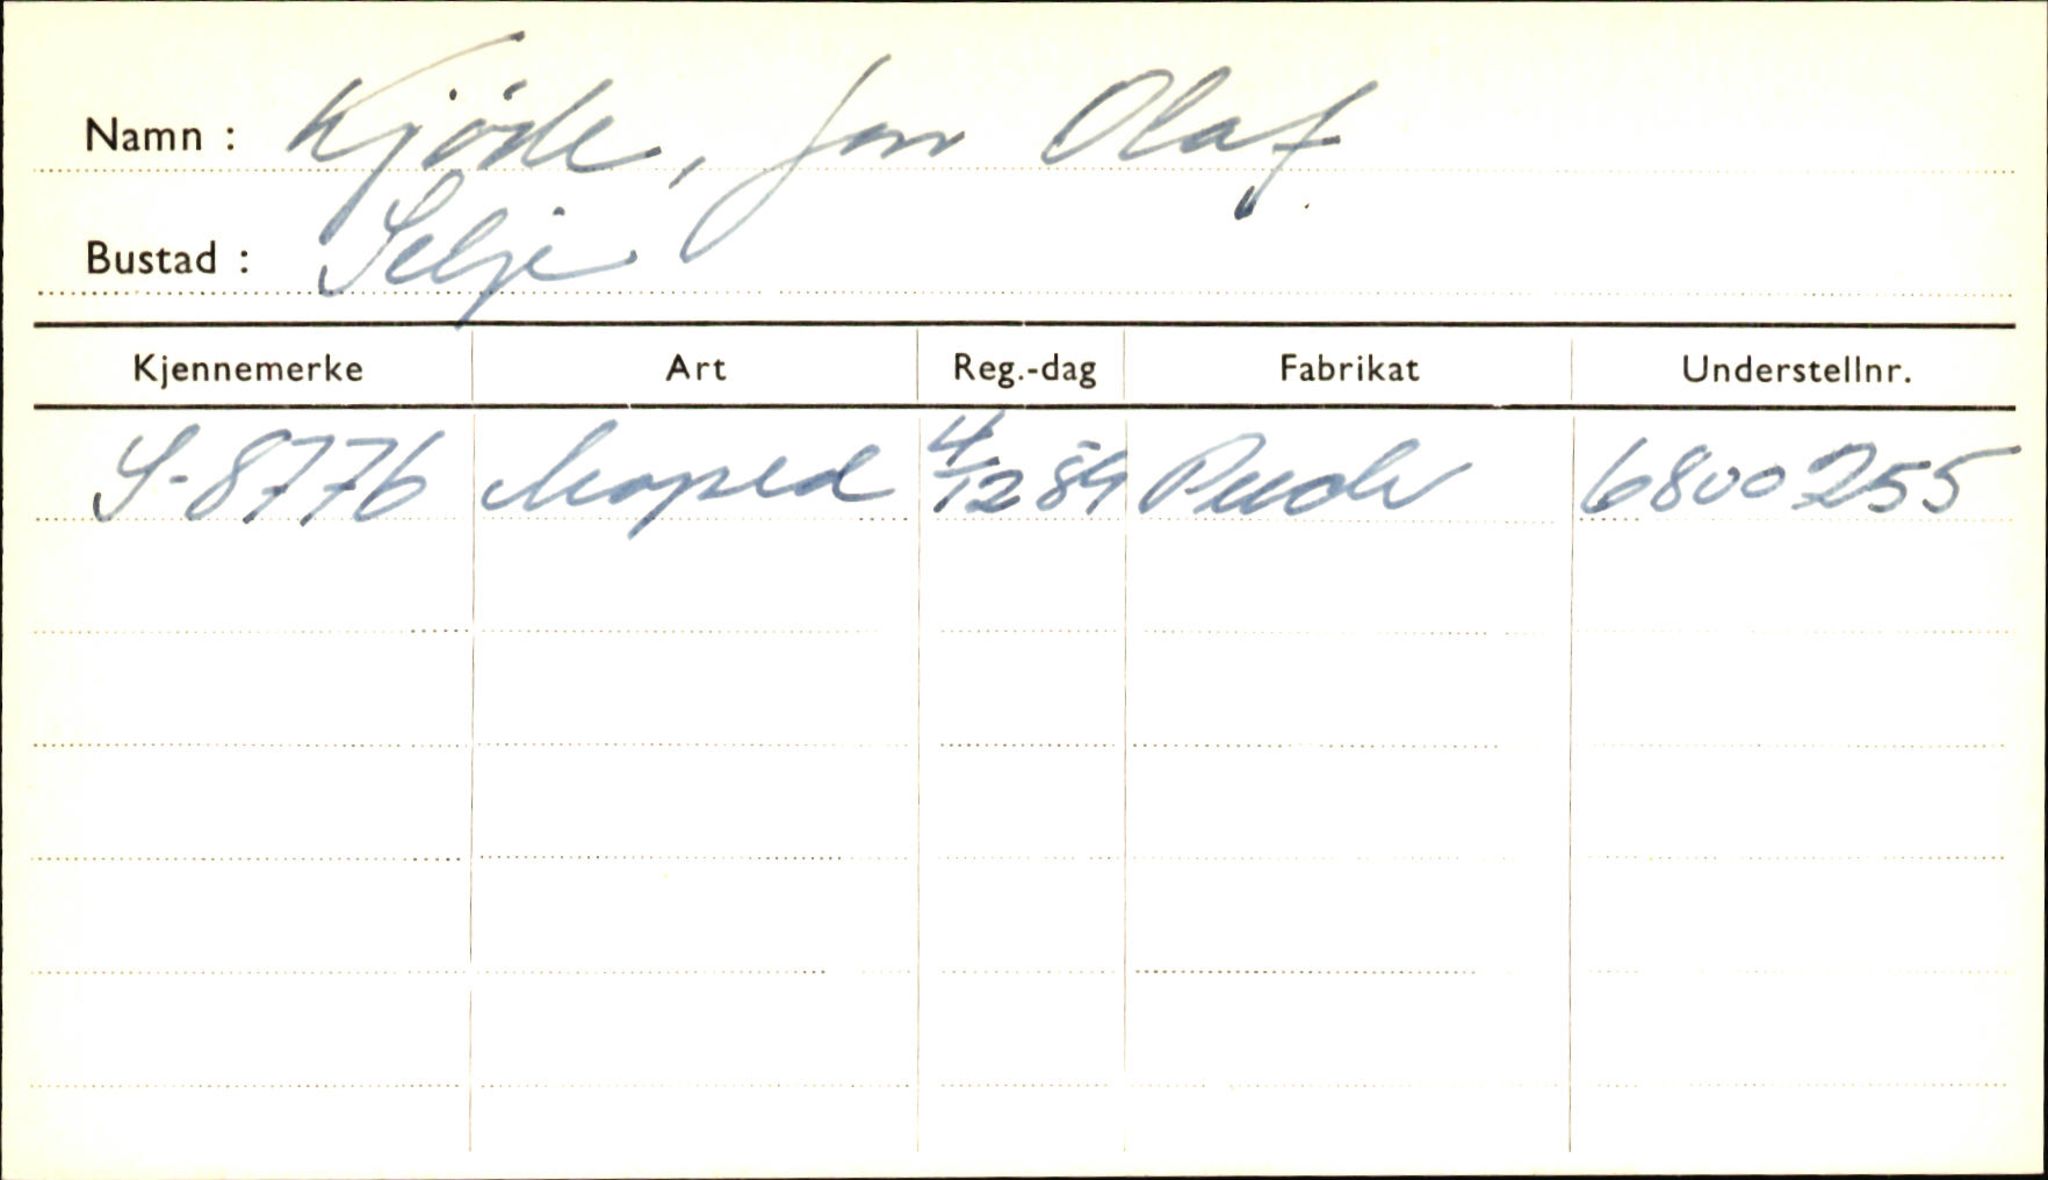 Namn : Kjöde, Jon Olaf
Bustad : Selje
Kjennemerke Art Reg.-dag Fabrikat Understellnr.
S-8776 Moped 4/12 59 Puch 6800255